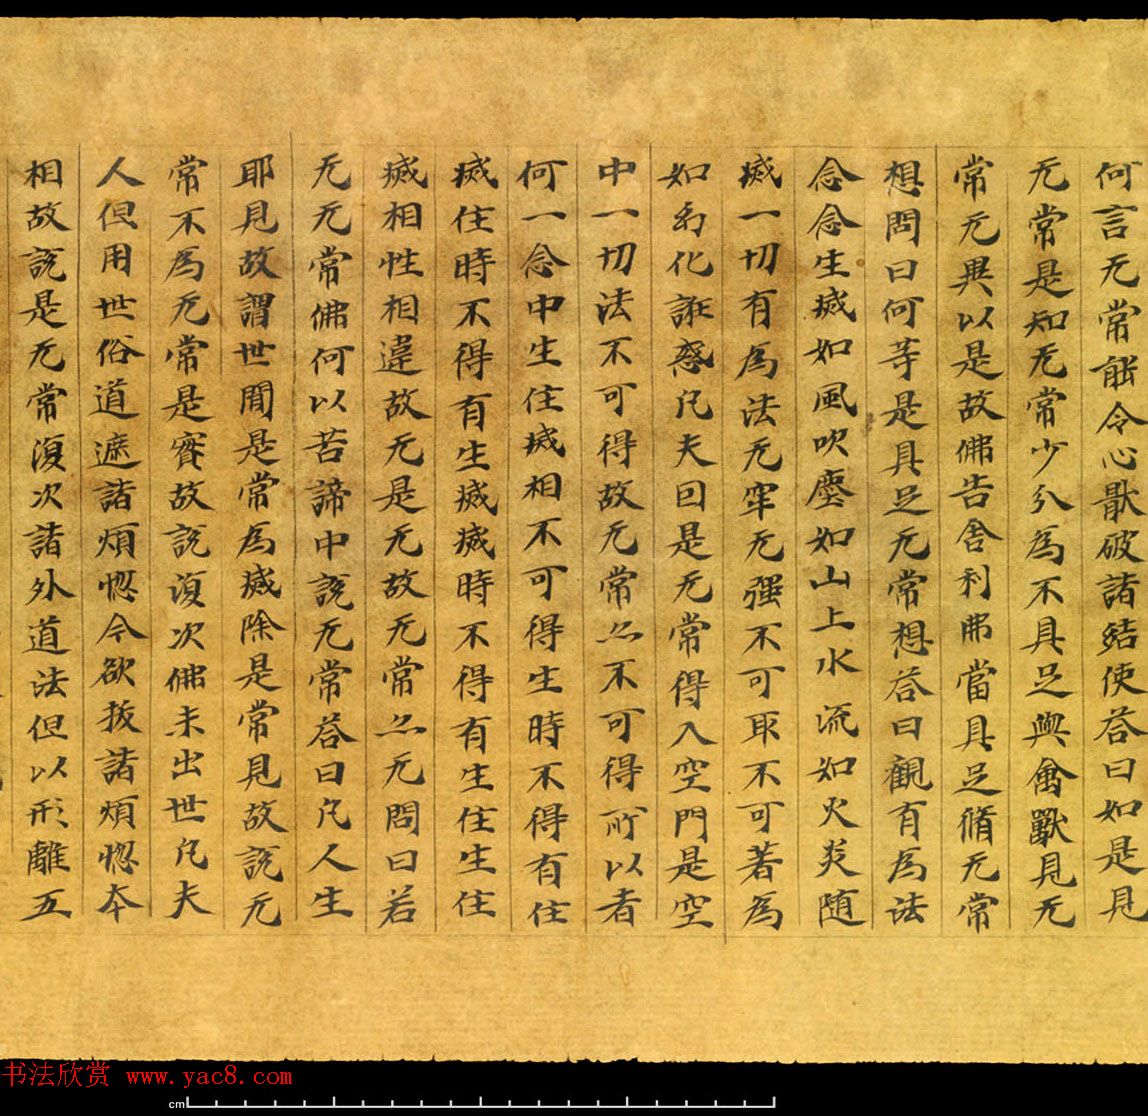 何言无常能令心猒破諸結使荅曰如是見
无常是知无常少分為不具足與禽獸見无
常无異以是故佛告舍利弗當具足脩无常
想問曰何等是具足无常想荅曰觀有為法
念念生滅如風吹塵如山上水流如火炎随
滅一切有為法无牢无强不可取不可著為
如幻化誑惑凡夫因是无常得入空門是空
中一切法不可得故无常亦不可得所以者
何一念中生住滅相不可得生時不得有住
滅住時不得有生滅滅時不得有生住生住
滅相性相違故无是无故无常亦无問曰若
无无常佛何以苦諦中說无常荅曰凡人生
耶見故謂世間是常為滅除是常見故說无
常不為无常是實故說復次佛未出世凡夫
人但用世俗道遮諸煩惱今欲拔諸煩惱本
相故說是无常復次諸外道法但以形離五
书法欣赏 www.yac8.com
cm